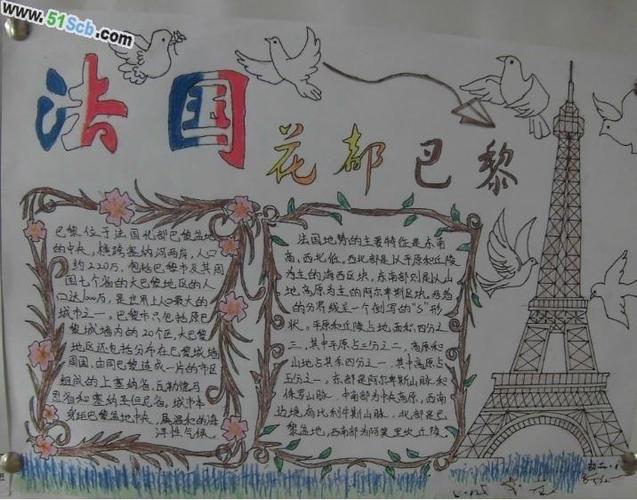 www.51Scb.com
法国
花都巴黎
巴黎位于法国北部巴黎盆地
的中央,横跨塞纳河两岸,人口
约220万,包括巴黎市及其周
围七个省的大巴黎地区的人
口达1000万,是世界上人口最大的
城市之一,巴黎市只包括原巴
黎城墙内的20个区,大巴黎
地区还包括分布在巴黎城墙
周围,由同巴黎连成一片的市区
组成的上塞纳省,瓦勒德马
恩省和塞纳-圣但尼省,城市本
身踞巴黎盆地中央,属温和的海
洋性气候。
法国地势的主要特征是东南
高,西北低。西北部是以平原和丘陵
为主的海西区块,东南部则是以山
地,高原为主的阿尔卑斯区块,
的分界线呈一个倒写的"S"形
状。平原和丘陵占地面积四分之
三,其中平原占三分之二,高原和
山地占其余四分之一,其中高原占
五分之一,东部是阿尔卑斯山脉和
侏罗山脉,中南部为中央高原,西南
边境有比利牛斯山脉,北部是巴
黎盆地,西南部为阿奎丹丘陵。